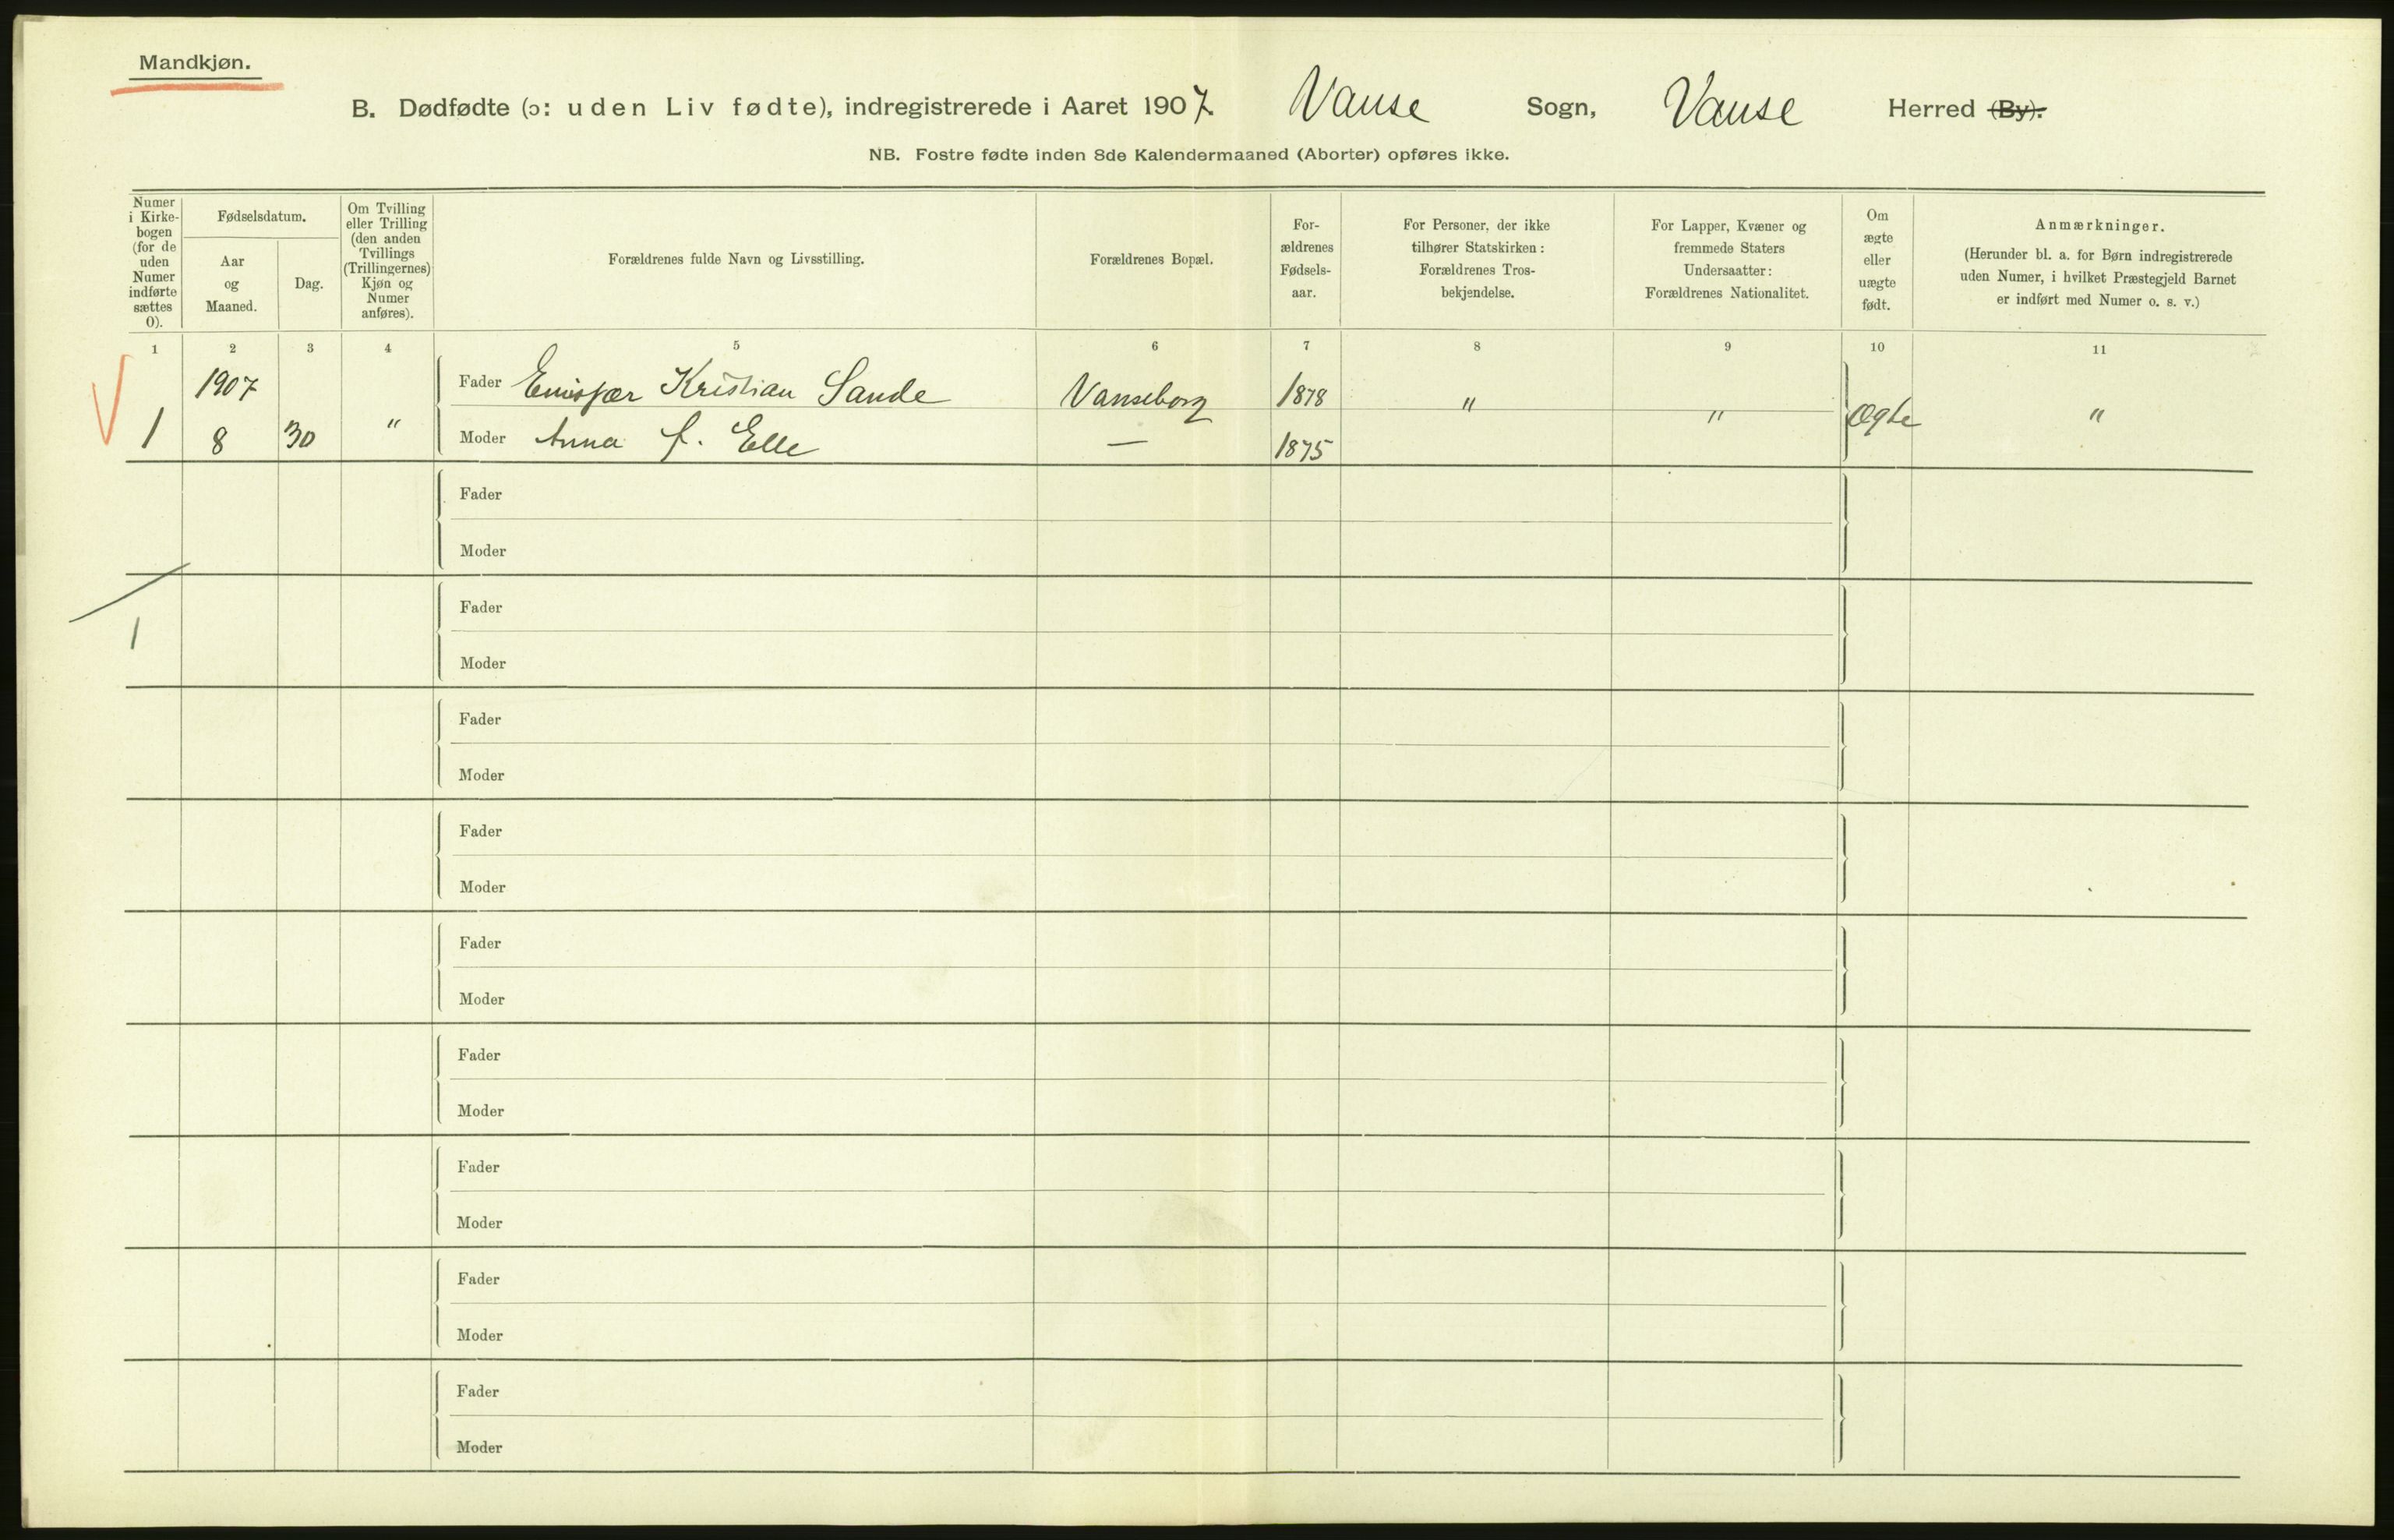 Mandkjøn.
B. Dødfødte (ɔ: uden Liv fødte), indregistrerede i Aaret 1907. Vanse Sogn, Vanse Herred (By).
NB. Fostre fødte inden 8de Kalendermaaned (Aborter) opføres ikke.
Numer
i Kirke-
bogen
(for de
uden
Numer
indførte
sættes
0).
Fødselsdatum.
Aar
og
Maaned.
Dag.
Om Tvilling
eller Trilling
(den anden
Tvillings
(Trillingernes)
Kjøn og
Numer
anføres).
Forældrenes fulde Navn og Livsstilling.
Forældrenes Bopæl.
For-
ældrenes
Fødsels-
aar.
For Personer, der ikke
tilhører Statskirken:
Forældrenes Tros-
bekjendelse.
For Lapper, Kvæner og
fremmede Staters
Undersaatter:
Forældrenes Nationalitet.
Om
ægte
eller
uægte
født.
Anmærkninger.
(Herunder bl. a. for Børn indregistrerede
uden Numer, i hvilket Præstegjeld Barnet
er indført med Numer o. s. v.)
1 2 3 4 5 6 7 8 9 10 11
1907 Fader Kristian Sande Vanseborg 1878 " " Ægte "
1 8 30 " Moder Anna f. Elle — 1875
Fader
Moder
Fader
1
Moder
Fader
Moder
Fader
Moder
Fader
Moder
Fader
Moder
Fader
Moder
Fader
Moder
Fader
Moder